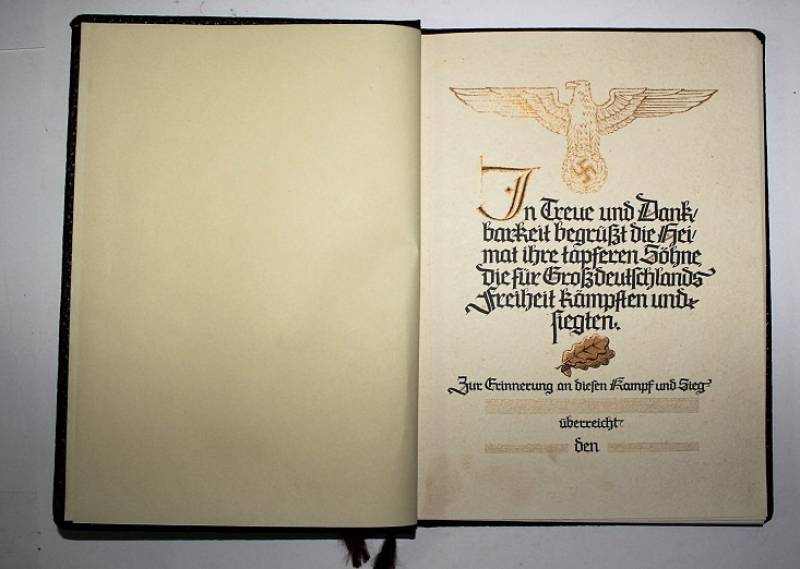 In Treue und Dank/
barkeit begrüßt die Hei/
mat ihre tapferen Söhne
die für Großdeutschlands
Freiheit kämpften und
siegten.
Zur Erinnerung an diesen Kampf und Sieg
überreicht
den